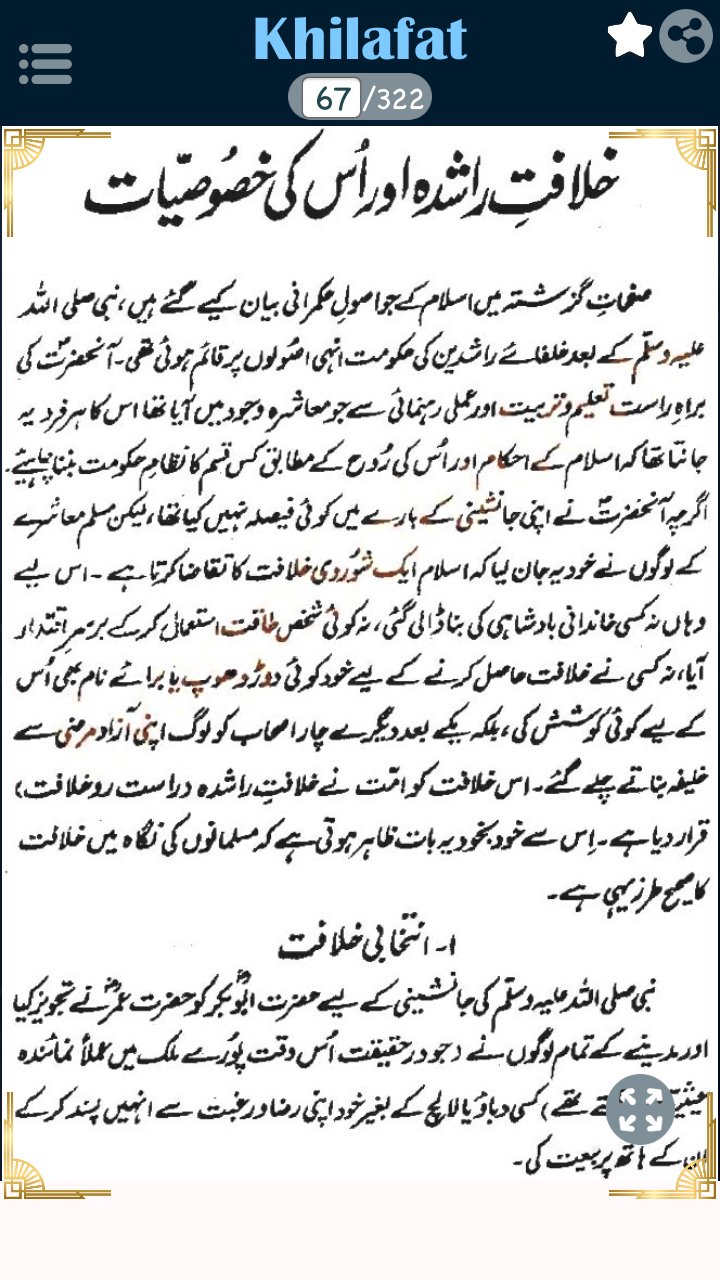 Khilafat
67/322
خلافتِ راشدہ اور اُس کی خصُوصیّات
صفحاتِ گزشتہ میں اسلام کے جو اصولِ حکمرانی بیان کیے گئے ہیں، نبی صلی اللہ
علیہ وسلّم کے بعد خلفائے راشدین کی حکومت انہی اصُولوں پر قائم ہوئی تھی۔ آنحضرتؐ کی
براہِ راست تعلیم و تربیت اور عملی رہنمائی سے جو معاشرہ وجود میں آیا تھا اس کا ہر فرد یہ
جانتا تھا کہ اسلام کے احکام اور اُس کی رُوح کے مطابق کس قسم کا نظامِ حکومت بننا چاہیئے۔
اگرچہ آنحضرتؐ نے اپنی جانشینی کے بارے میں کوئی فیصلہ نہیں کیا تھا، لیکن مسلم معاشرے
کے لوگوں نے خود یہ جان لیا کہ اسلام ایک شُوروی خلافت کا تقاضا کرتا ہے۔ اس لیے
وہاں نہ کسی خاندانی بادشاہی کی بنا ڈالی گئی، نہ کوئی شخص طاقت استعمال کرکے برسرِ اقتدار
آیا، نہ کسی نے خلافت حاصل کرنے کے لیے خود کوئی دوڑ دھوپ یا برائے نام بھی اُس
کے لیے کوئی کوشش کی، بلکہ یکے بعد دیگرے چار اصحاب کو لوگ اپنی آزاد مرضی سے
خلیفہ بناتے چلے گئے۔ اس خلافت کو امّت نے خلافتِ راشدہ (راست رو خلافت)
قرار دیا ہے۔ اِس سے خود بخود یہ بات ظاہر ہوتی ہے کہ مسلمانوں کی نگاہ میں خلافت
کا صحیح طرز یہی ہے۔
۱۔ انتخابی خلافت
نبی صلی اللہ علیہ وسلّم کی جانشینی کے لیے حضرت ابُوبکرؓ کو حضرت عمرؓ نے تجویز کیا
اور مدینے کے تمام لوگوں نے (جو درحقیقت اُس وقت پُورے ملک میں عملاً نمائندہ
تھے) کسی دباؤ یا لالچ کے بغیر خود اپنی رضا و رغبت سے انہیں پسند کرکے
ان کے ہاتھ پر بیعت کی۔